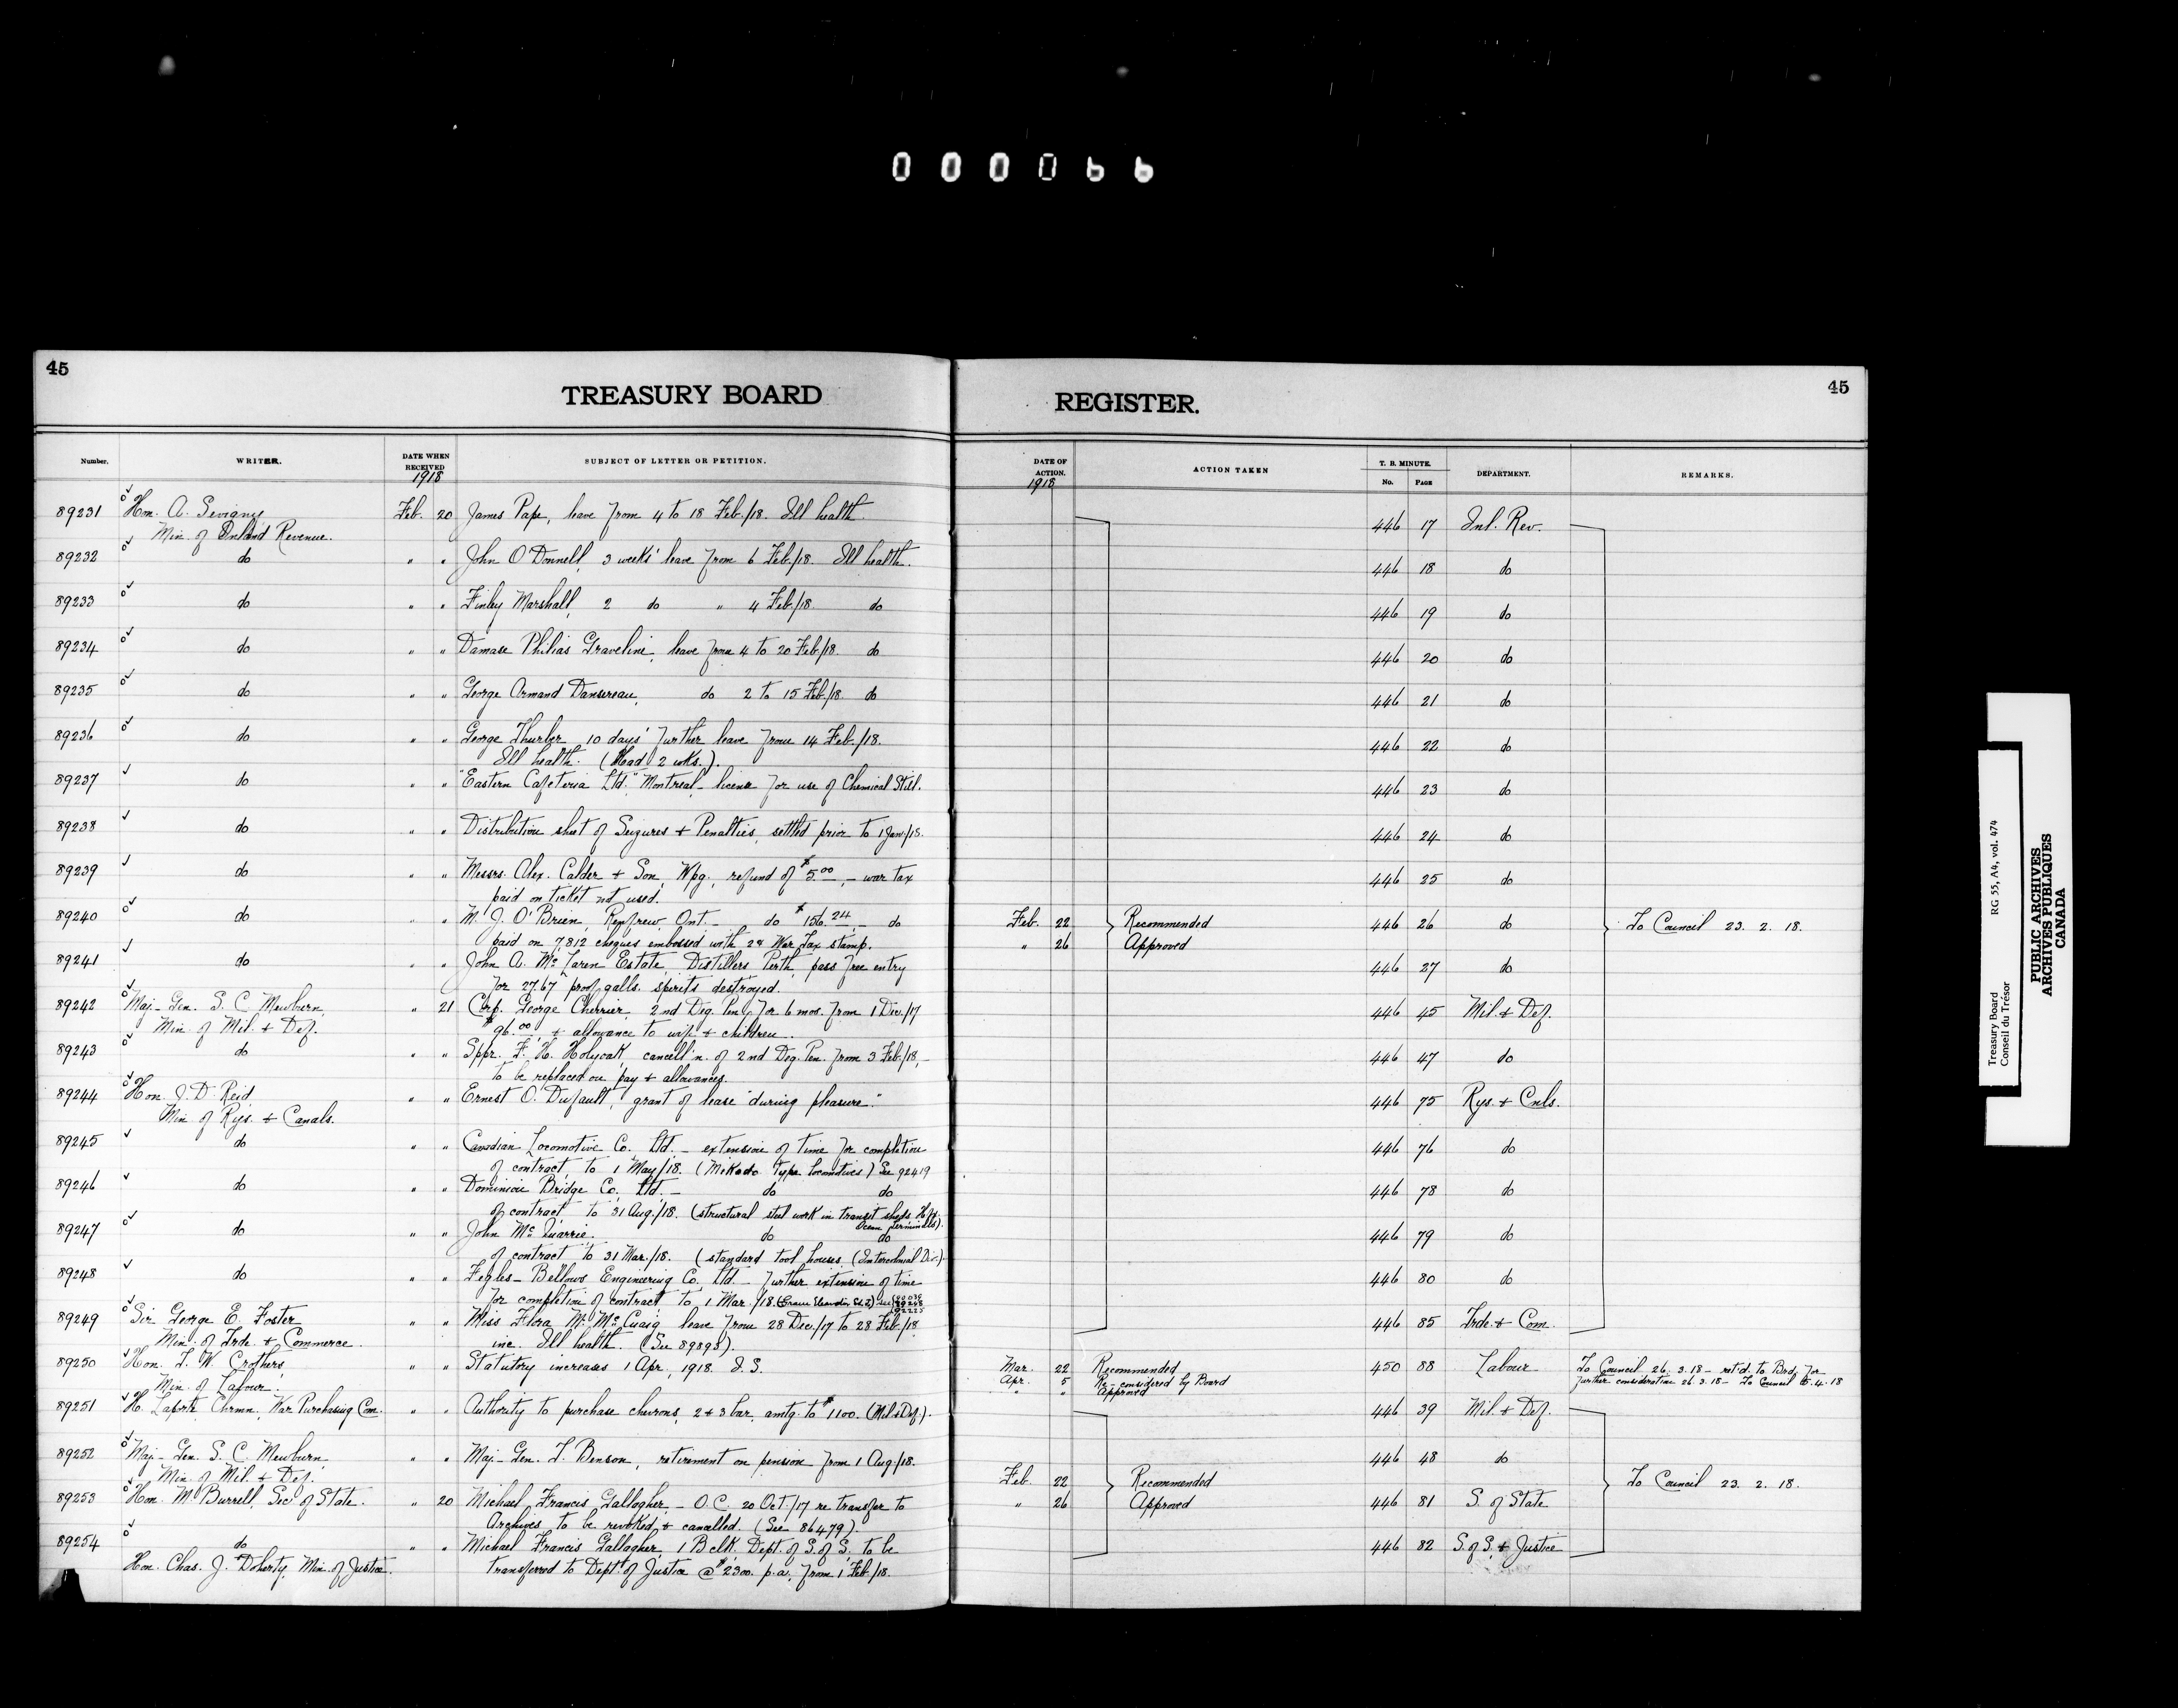 000066
45
TREASURY BOARD
REGISTER.
45
Number.
WRITER.
DATE WHEN RECEIVED
1918
SUBJECT OF LETTER OR PETITION.
DATE OF ACTION.
1918
ACTION TAKEN
T. B. MINUTE.
No.
PAGE
DEPARTMENT.
REMARKS.
89231 Hon. A. Sevigny Feb. 20 James Pape, leave from 4 to 18 Feb./18. Ill health. 446 17 Inl. Rev.
Min. of Inland Revenue.
89232 do " " John O'Donnell, 3 weeks' leave from 6 Feb./18. Ill health. 446 18 do
89233 do " " Finlay Marshall, 2 do " 4 Feb./18. do 446 19 do
89234 do " " Damase Philias Graveline, leave from 4 to 20 Feb./18. do 446 20 do
89235 do " " George Armand Dansereau, do 2 to 15 Feb./18 do 446 21 do
89236 do " " George Thurber 10 days' further leave from 14 Feb./18. 446 22 do
Ill health. (Had 2 wks.).
89237 do " " "Eastern Cafeteria Ltd." Montreal - license for use of Chemical Still. 446 23 do
89238 do " " Distribution sheet of Seizures & Penalties, settled prior to 1 Jan./18. 446 24 do
89239 do " " Messrs. Alex. Calder & Son, Wpg., refund of $5.00, - war tax 446 25 do
paid on ticket not used.
89240 do " " M. J. O'Brien, Renfrew, Ont. - do $156.24 - do Feb. 22 Recommended 446 26 do To Council 23. 2. 18.
paid on 7,812 cheques embossed with 2¢ War Tax stamp. " 26 Approved
89241 do " " John A. McLaren Estate, Distillers, Perth, pass free entry 446 27 do
for 27.67 proof galls. spirits destroyed.
89242 Maj.-Gen. S. C. Mewburn, " 21 Corp. George Cherrier, 2nd Deg. Pen. for 6 mos. from 1 Dec./17 446 45 Mil. & Def.
Min. of Mil. & Def. $96.00 & allowance to wife & children.
89243 do " " Sppr. F. H. Holyoak, cancell'n. of 2nd Deg. Pen. from 3 Feb./18, - 446 47 do
to be replaced on pay & allowances.
89244 Hon. J. D. Reid, " " Ernest O. Dufault, grant of lease "during pleasure." 446 75 Rys. & Cnls.
Min. of Rys. & Canals.
89245 do " " Canadian Locomotive Co. Ltd. - extension of time for completion 446 76 do
of contract to 1 May/18. (Mikado type locomotives) See 92419
89246 do " " Dominion Bridge Co. Ltd. - do do 446 78 do
of contract to 31 Aug./18. (structural steel work in transit sheds Hfx.
Ocean Terminals).
89247 do " " John McQuarrie. do do 446 79 do
of contract to 31 Mar./18. (standard tool houses (Intercolonial Div.)
89248 do " " Fegles-Bellows Engineering Co. Ltd. - further extension of time 446 80 do
for completion of contract to 1 Mar./18.
89249 Sir George E. Foster " " Miss Flora M. McCuaig, leave from 28 Dec./17 to 28 Feb./18 446 85 Trde. & Com.
Min. of Trde. & Commerce. inc. Ill health. (See 89898).
89250 Hon. T. W. Crothers, " " Statutory increases 1 Apr., 1918. I. S. Mar. 22 Recommended 450 88 Labour To Council 26. 3. 18 - ret'd. to Brd. for
Min. of Labour. Apr. 5 Re-considered by Board further consideration 26.3.18 - To Council 4. 18
" " Approved
89251 H. Laporte Chrmn. War Purchasing Com. " " Authority to purchase chevrons, 2 & 3 bar, amtg. to $1100. (Mil. & Def.). 446 39 Mil. & Def.
89252 Maj.-Gen. S. C. Mewburn, " " Maj.-Gen. T. Benson, retirement on pension from 1 Aug./18. 446 48 do
Min. of Mil. & Def. Feb. 22 Recommended To Council 23. 2. 18.
89253 Hon. M. Burrell, Sec. of State. " 20 Michael Francis Gallagher - O.C. 20 Oct./17 re transfer to " 26 Approved 446 81 S. of State
Archives to be revoked & cancelled. (See 86479).
89254 do " " Michael Francis Gallagher, 1 B clk. Dept. of S. of S. to be 446 82 S. of S. & Justice
Hon. Chas. J. Doherty, Min. of Justice. transferred to Dept. of Justice @ $2300. p.a. from 1 Feb./18.
Treasury Board
Conseil du Trésor
RG 55, A4, vol. 474
PUBLIC ARCHIVES
ARCHIVES PUBLIQUES
CANADA